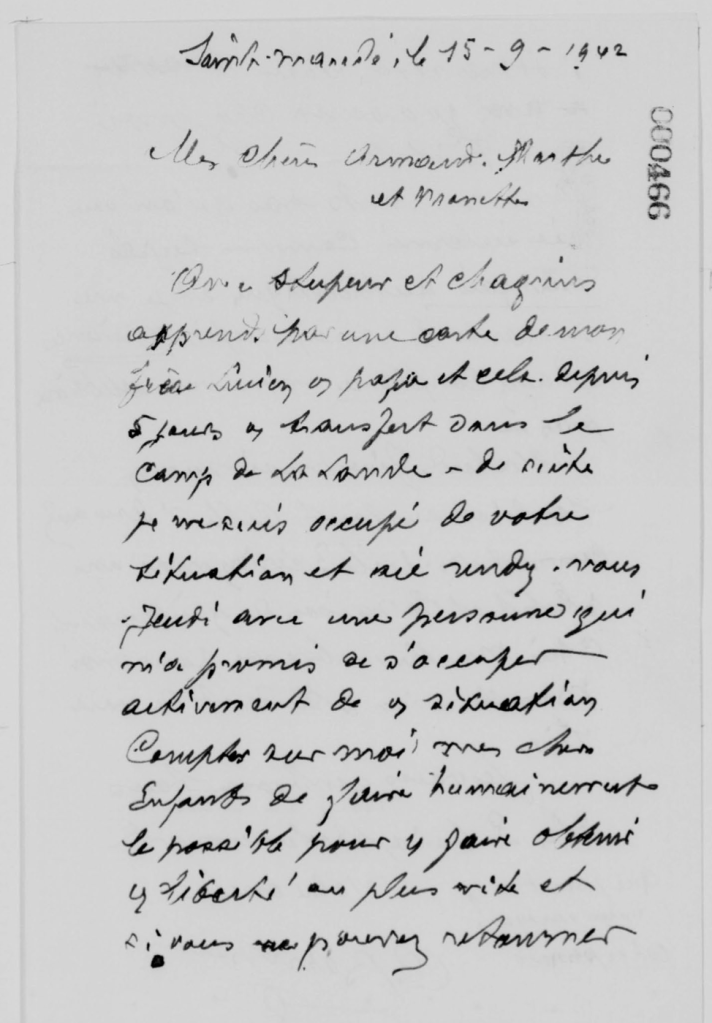 le 15-9-1942
000466
Mes chers Armand. Marthe
et
Avec stupeur et chagrins
apprends par une carte de mon
frère Lucien papa et cela. depuis
5 jours transfert dans le
camp de La Lande - de suite
je me suis occupé de votre
situation et rendez. vous
Jeudi avec une personne qui
m'a promis de s'occuper
activement de situation
Compter sur moi mes chers
Enfants de faire humainement
le possible pour faire obtenir
liberté au plus vite et
si vous pouvez retourner